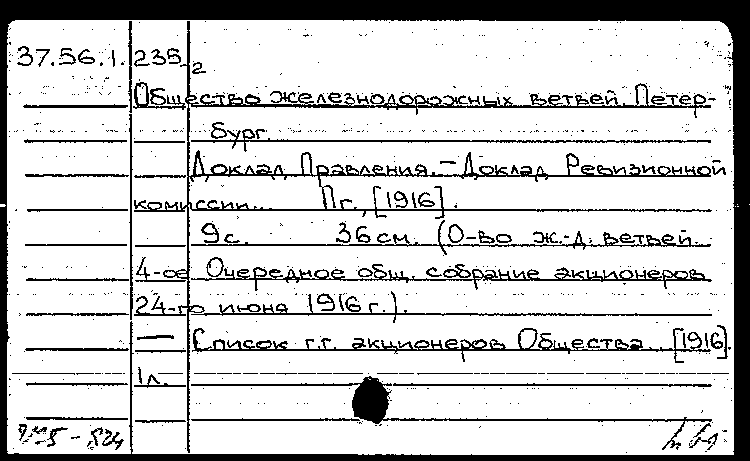 37.56.1.235 2
Общество железнодорожных ветвей. Петер-
бург.
Доклад Правления. — Доклад Ревизионной
комиссии... Пг., [1916].
9с. 36см. (О-во ж.-д. ветвей.
4-ое Очередное общ. собрание акционеров
24-го июня 1916 г.).
— Список г.г. акционеров Общества... [1916].
1л.